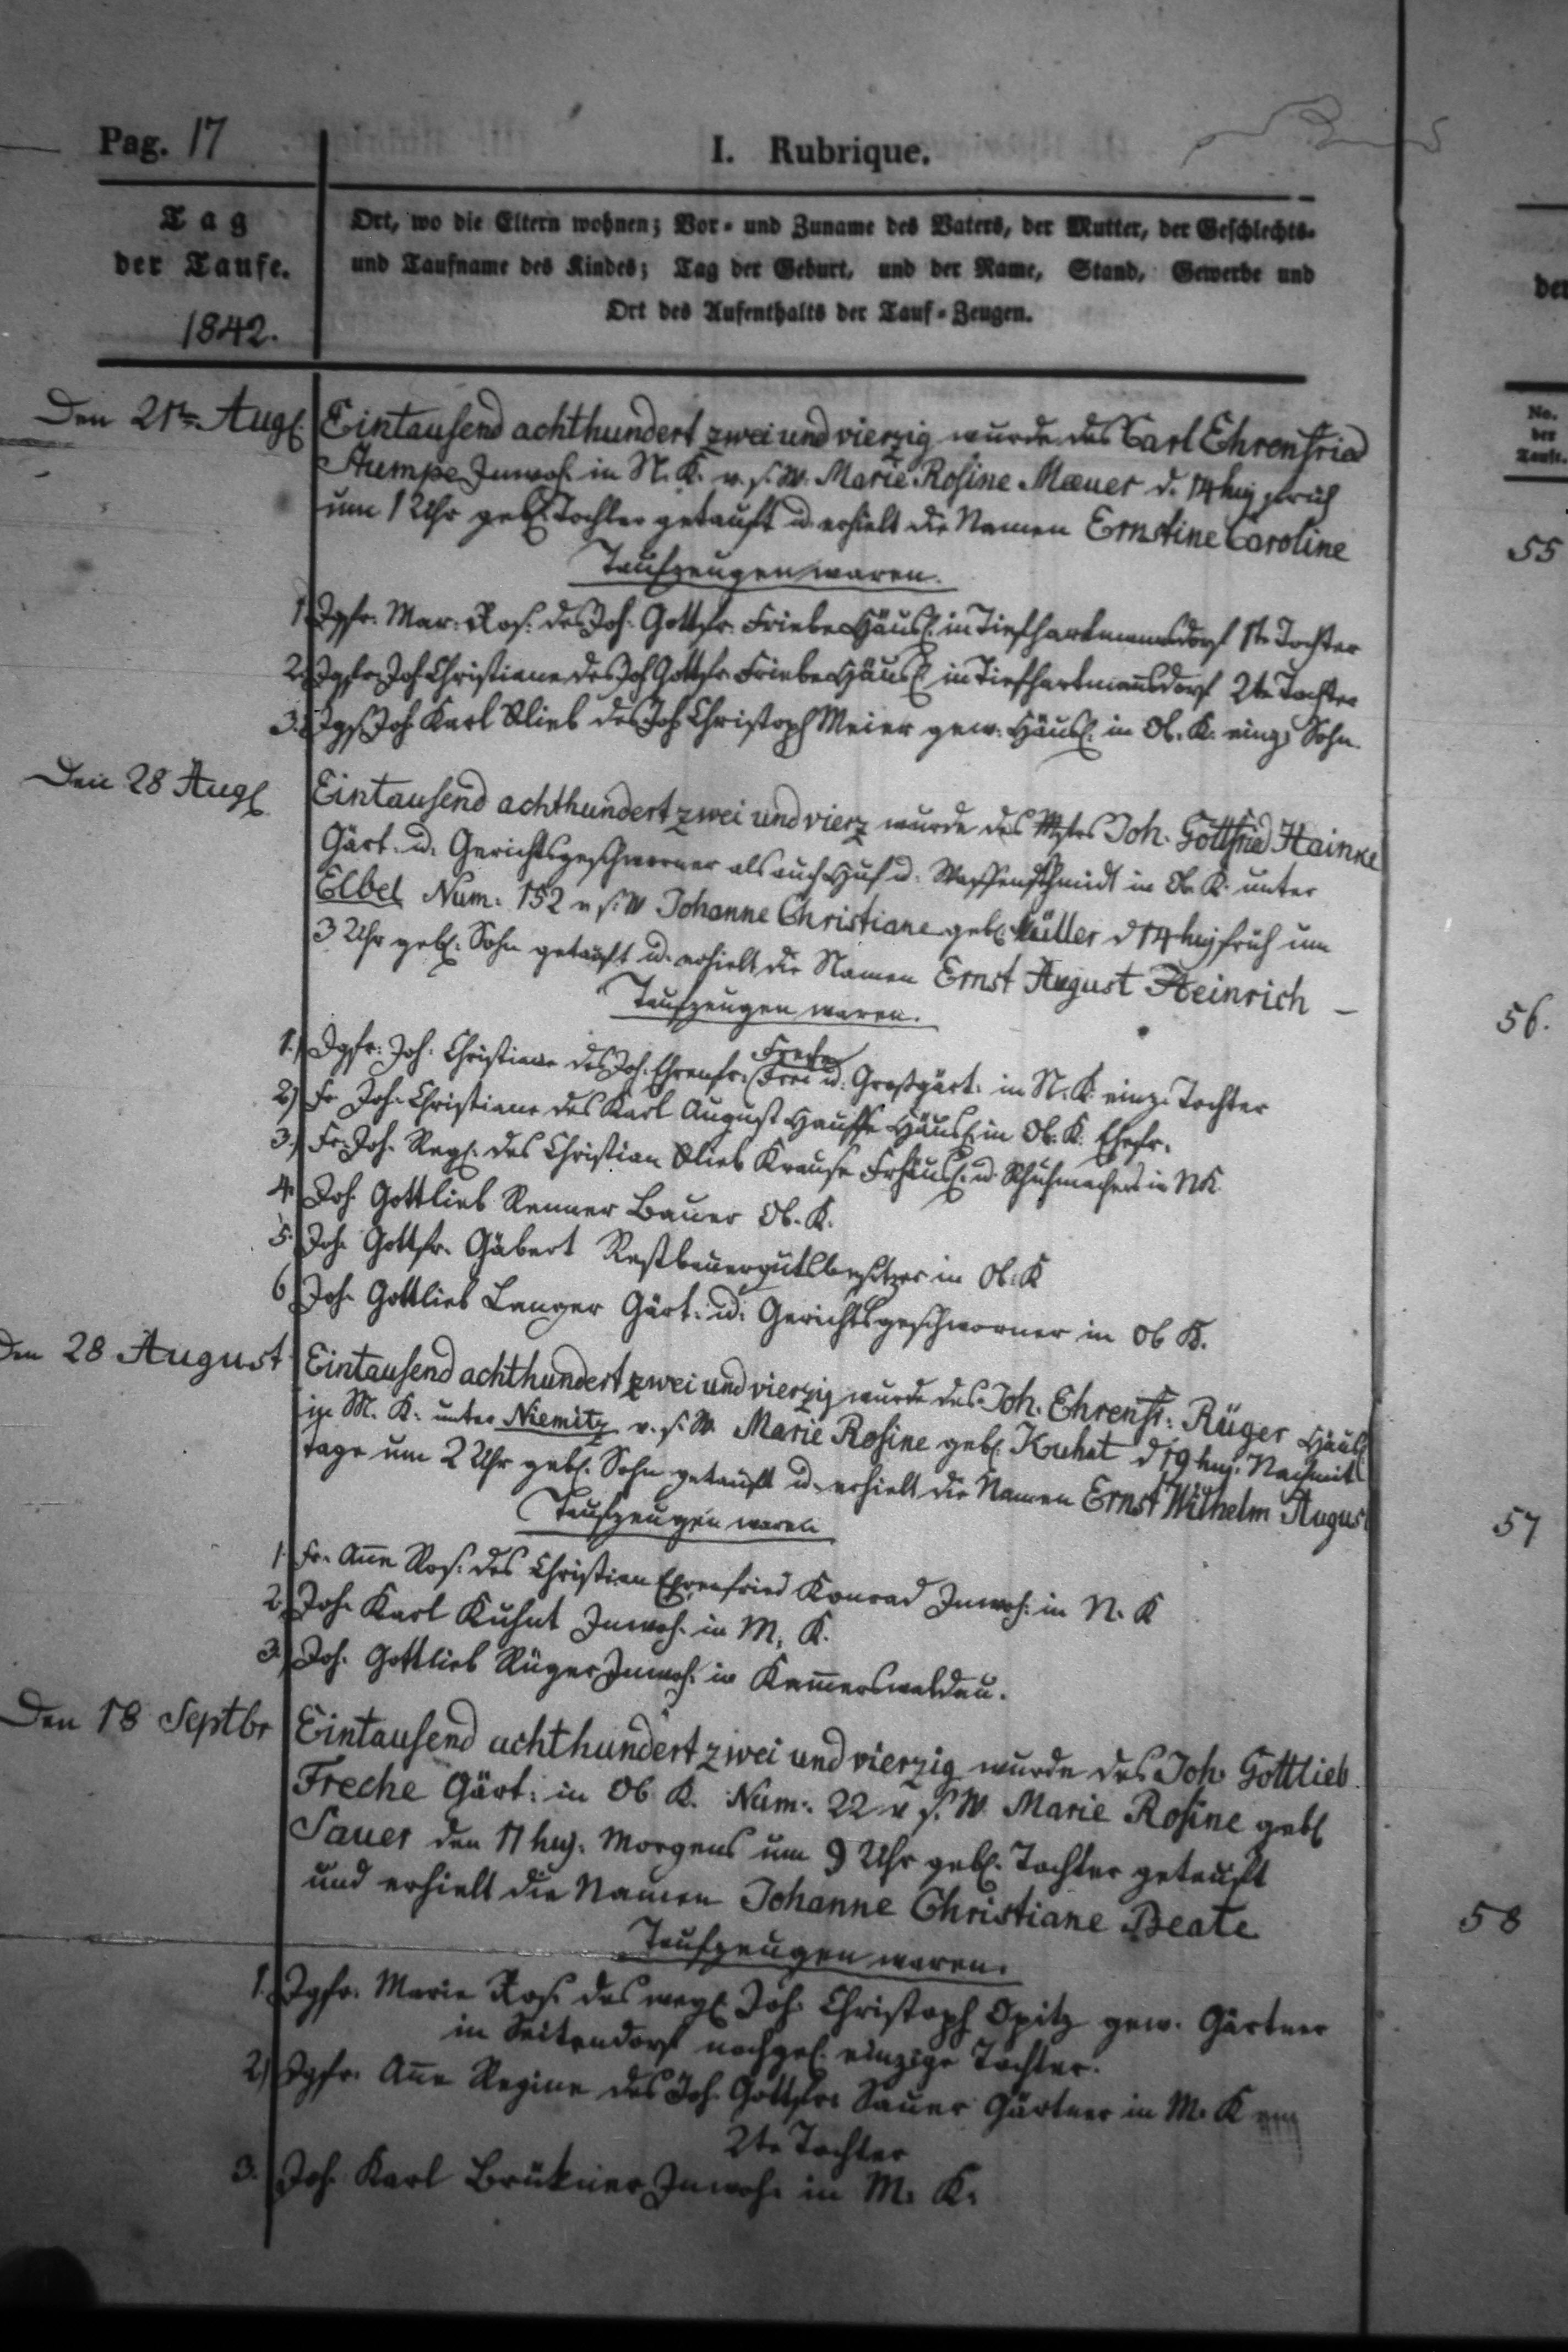 Pag. 17
I. Rubrique.
Tag
der Taufe.
1842.
Ort, wo die Eltern wohnen; Vor- und Zuname des Vaters, der Mutter, der Geschlechts-
und Taufname des Kindes; Tag der Geburt, und der Name, Stand, Gewerbe und
Ort des Aufenthalts der Tauf-Zeugen.
No.
der
Taufe.
Den 21t Aug. Eintausend achthundert zwei und vierzig wurde des Carl Ehrenfried
Stumpe Inwoh. in N. K. v. s. W. Marie Rosine Mæuer d. 14 huj früh
um 1 Uhr geb. Tochter getauft u. erhielt die Namen Ernstine Caroline
55
Taufzeugen waren.
1. Jgfr. Mar. Ros. des Joh. Gottfr. Friebe Häusl. in Tiefhartmannsdorf 1te Tochter
2. Jgfr. Joh Christiane des Joh Gottfr. Friebe Häusl. in Tiefhartmañsdorf 2te Tochter
3. Jggs Joh Karl Glieb des Joh Christoph Meier gew. Häusl. in Ob. K. einz. Sohn.
Den 28 Aug. Eintausend achthundert zwei und vierz wurde des Mstrs Joh. Gottfried Hainke
Gärt. u. Gerichtsgeschworner als auch Huf u. Waffenschmidt in Ob. K. unter
Elbel Num. 152 v s. W Johanne Christiane geb. Müller d 14 huj früh um
3 Uhr geb. Sohn getauft u. erhielt die Namen Ernst August Heinrich –
56.
Taufzeugen waren.
1.) Jgfr. Joh. Christiane des Joh. Ehrenfr. Frei u. Großgärt. in N. K. einz. Tochter
2) Fr Joh. Christiane des Karl August Hauffe Häusl. in Ob. K. Ehefr.
3.) Fr. Joh. Reg. des Christian Glieb Krause Frhäusl. u Schuhmachers in NK
4. Joh Gottlieb Renner Bauer Ob. K.
5. Joh. Gottfr. Gäbert Restbauergutsbesitzer in Ob. K
6 Joh. Gottlieb Langer Gärt. u. Gerichtsgeschworner in Ob K.
Den 28 August Eintausend achthundert zwei und vierzig wurde des Joh. Ehrenfr. Rüger Häusl
in M. K. unter Niemitz v. s. W. Marie Rosine geb. Kuhnt d 19 huj. Nachmit
tags um 2 Uhr geb. Sohn getauft u. erhielt die Namen Ernst Wilhelm August
57
Taufzeugen waren
1. Fr. Añe Ros. des Christian Ehrenfried Konrad Inwoh. in N. K
2. Joh. Karl Kuhnt Inwoh. in M. K.
3.) Joh. Gottlieb Rüger Inwoh. in Kam̄erswaldau.
Den 18 Septbr Eintausend achthundert zwei und vierzig wurde des Joh. Gottlieb
Freche Gärt. in Ob K. Num. 22 v s. W. Marie Rosine geb.
Sauer den 11 huj. Morgens um 9 Uhr geb. Tochter getauft
und erhielt die Namen Johanne Christiane Beate
58
Taufzeugen waren.
1. Jgfr. Marie Ros. des weyl. Joh. Christoph Opitz gew. Gärtner
in Seitendorf nachgel. einzige Tochter.
2.) Jgfr. Añe Regine des Joh. Gottfr. Sauer Gärtner in M. K
2te Tochter
3. Joh. Karl Brükner Inwoh. in M. K.